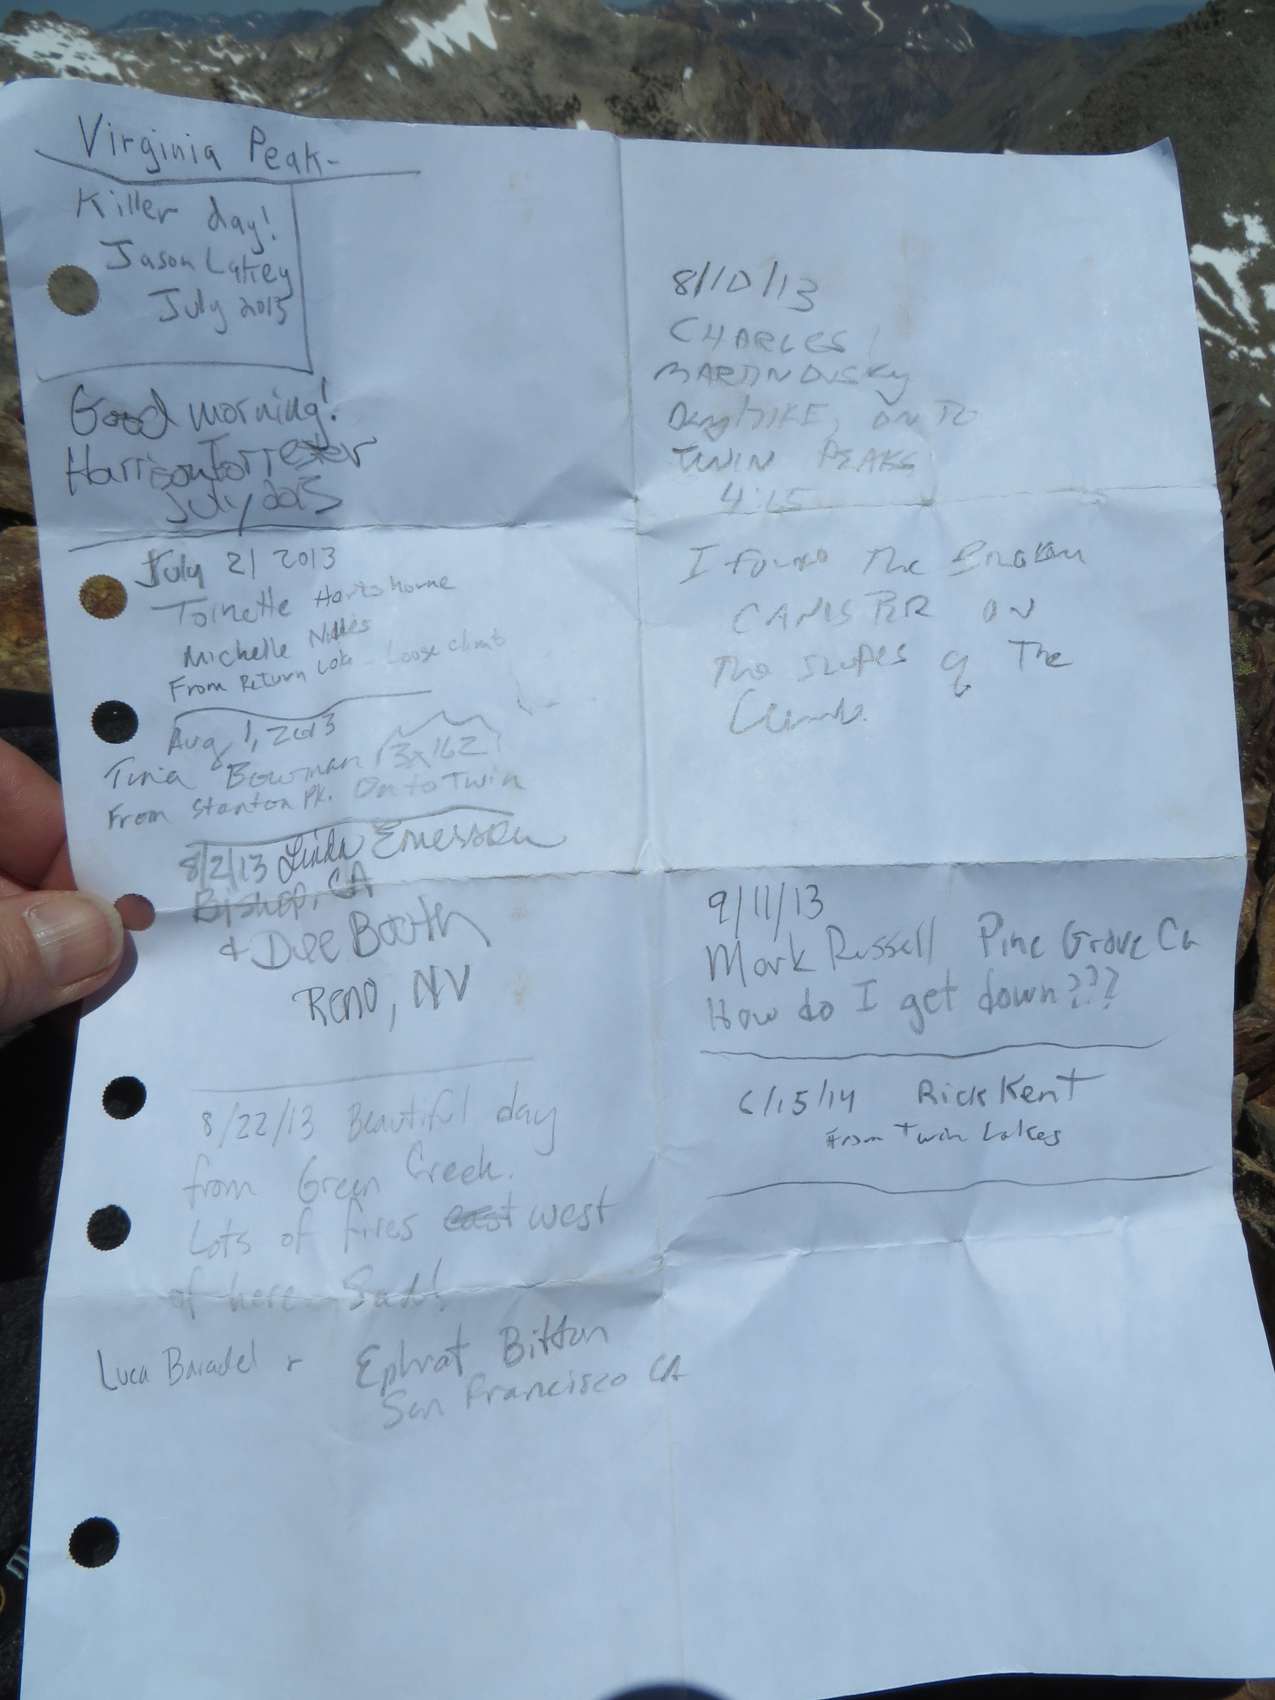 Virginia Peak-
Killer day!
Jason Lakey
July 2013
Good morning!
Harrison Forrester
July/2013
July 21 2013
Toinette Hartshorne
Michelle Nilles
From Return Lake - Loose climb
Aug 1, 2013
Tina Bowman 3x162
From Stanton Pk. On to Twin
8/2/13 Linda Emerson
Bishop, CA
+ Dee Booth
Reno, NV
8/22/13 Beautiful day
from Green Creek.
Lots of fires east west
of here. Sad!
Luca Baradel + Ephrat Bitton
San Francisco CA
8/10/13
CHARLES
MARTINOVSKY
DAYHIKE, ON TO
TWIN PEAKS
4:15
I found The Broken
CANISTER ON
The slopes of The
Climb.
9/11/13
Mark Russell Pine Grove Ca
How do I get down???
6/15/14 Rick Kent
From Twin Lakes